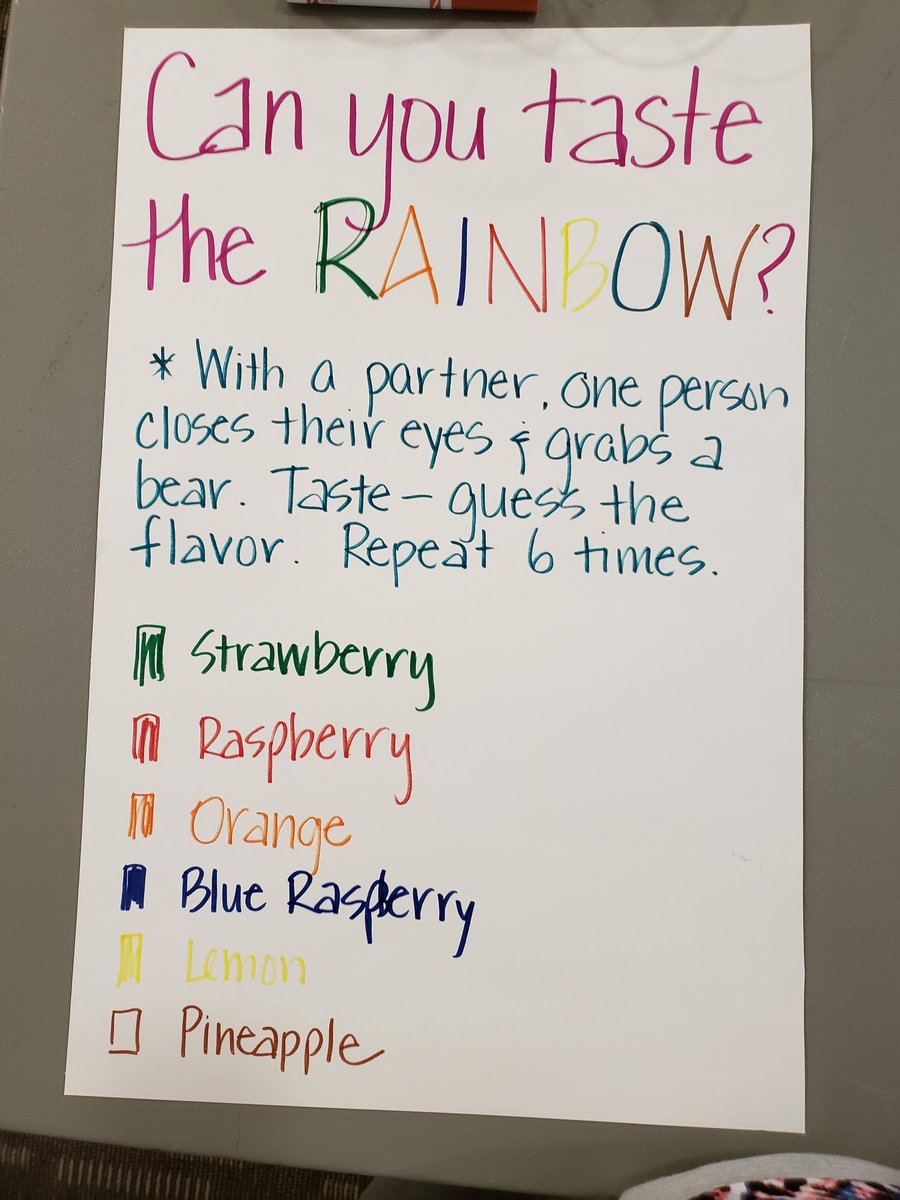 Can you taste
the RAINBOW?
* With a partner, one person
closes their eyes & grabs a
bear. Taste - guess the
flavor. Repeat 6 times.
Strawberry
Raspberry
Orange
Blue Raspberry
Lemon
Pineapple